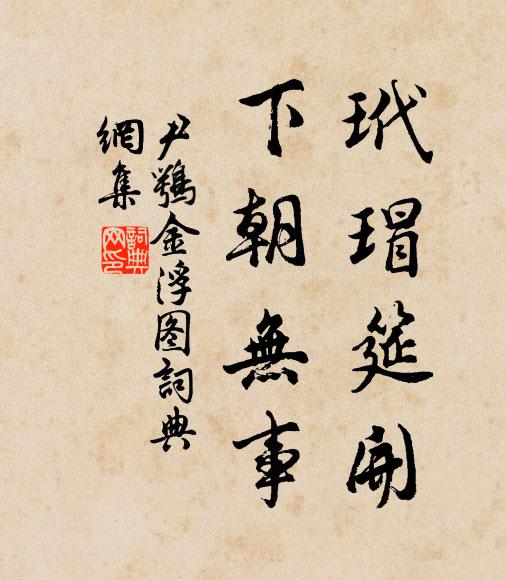 玳瑁筵開
下朝無事
尹鶚金浮图詞典
網集
詞典
网印